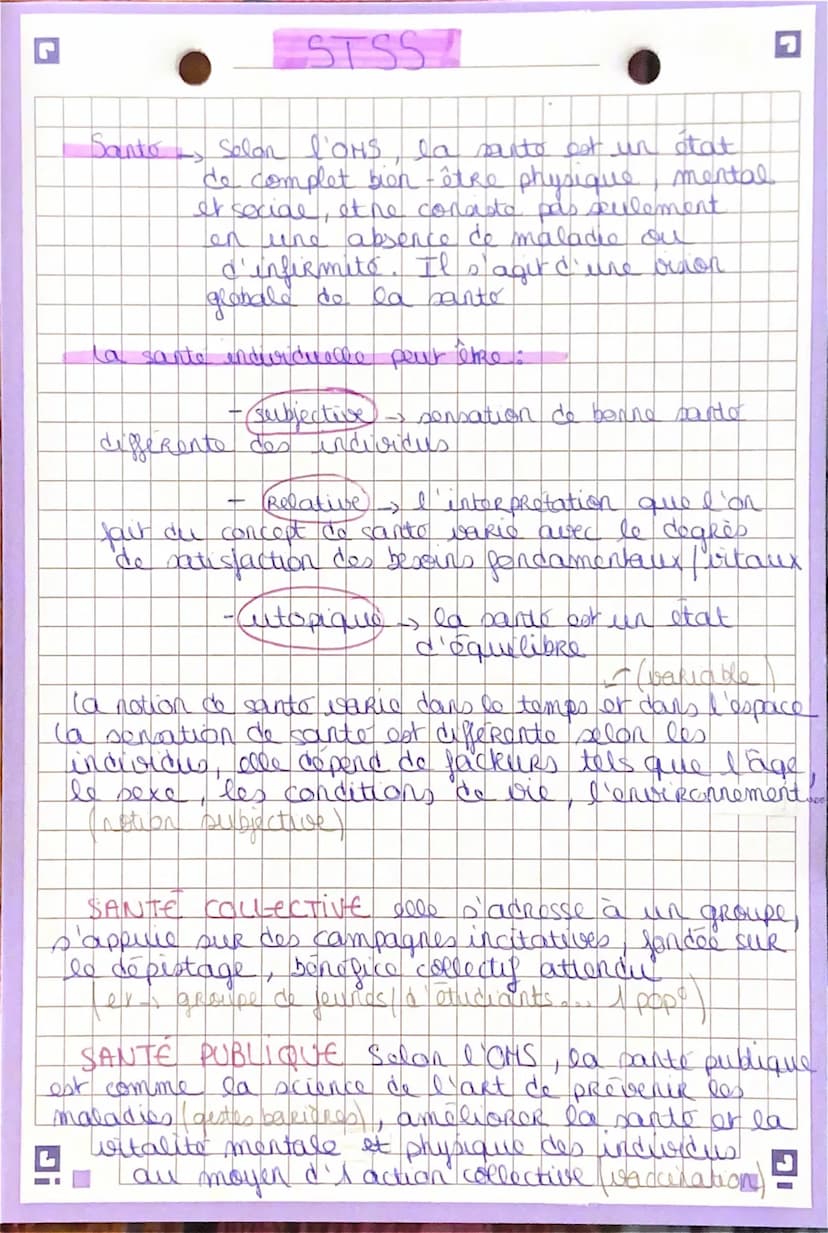 STSS
Santé → Selon l'OMS, la santé est un état
de complet bien-être physique, mental
et social, et ne consiste pas seulement
en une absence de maladie ou
d'infirmité. Il s'agit d'une vision
globale de la santé
La santé individuelle peut être :
- subjective → sensation de bonne santé
différente des individus
- Relative → l'interprétation que l'on
fait du concept de santé varie avec le degrès
de satisfaction des besoins fondamentaux / vitaux
- utopique → la santé est un état
d'équilibre
(variable)
la notion de santé varie dans le temps et dans l'espace
la sensation de santé est différente selon les
individus, elle dépend de facteurs tels que l'âge,
le sexe, les conditions de vie, l'environnement...
(notion subjective)
SANTÉ COLLECTIVE elle s'adresse à un groupe,
s'appuie sur des campagnes incitatives, fondée sur
le dépistage, bénéfice collectif attendu
(ex → groupe de jeunes / d'étudiants... 1 pop°)
SANTÉ PUBLIQUE Selon l'OMS, la santé publique
est comme la science de l'art de prévenir les
maladies (gestes barières), améliorer la santé et la
vitalité mentale et physique des individus
au moyen d'1 action collective (vaccination)